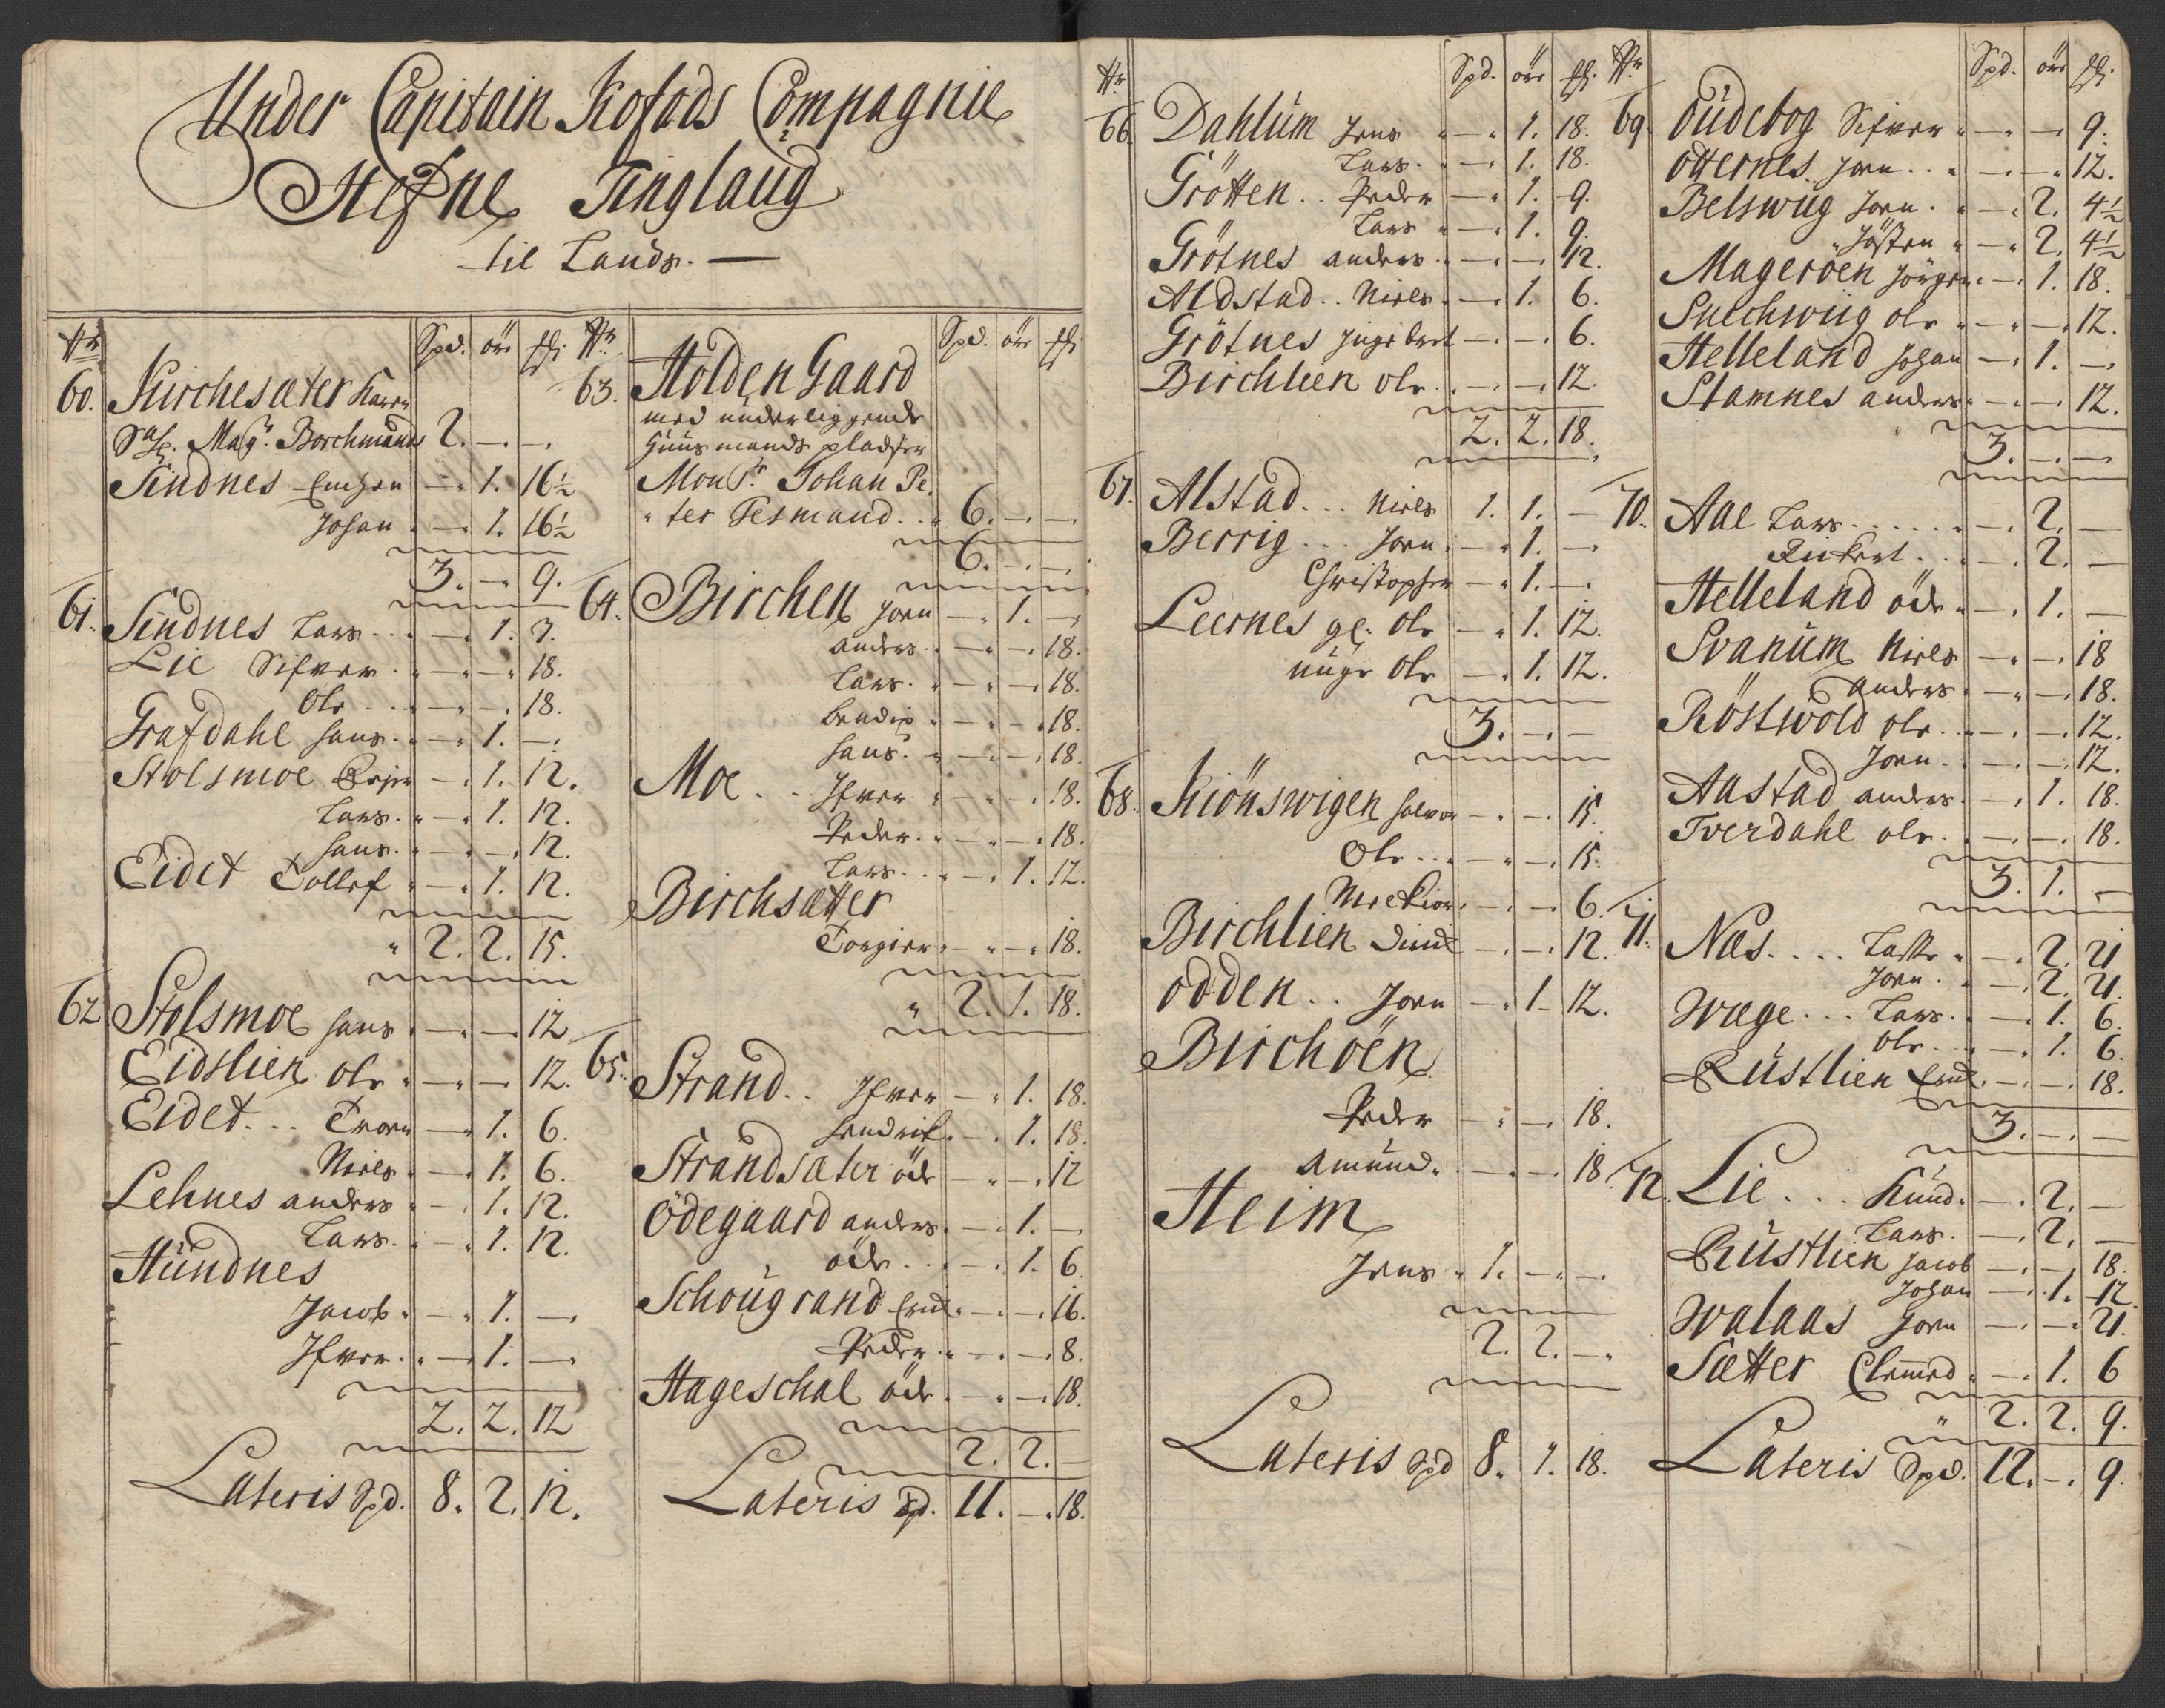 Under Capitain Kofods Compagnie
Hefne Tinglaug
til Lands. —
Nr. Spd. ört ß.
60. Kirchesæter
Sal. Mag. Borchmands 2. — . —
Sindnes — . 1. 16½
Johan — . 1. 16½
3. — . 9.
61. Sindnes Lars — . 1. 3.
Lie Sifver — . — . 18.
Ole — . — . 18.
Grafdahl Hans — . 1. —
Stolsmoe — . 1. 12.
Lars — . 1. 12.
Hans — . — . 12.
Eidet Tollef — . 1. 12.
2. 2. 15.
62. Stolsmoe Hans — . — . 12
Eidslien Ole — . — . 12.
Eidet — . 1. 6.
Niels — . 1. 6.
Lehnes Anders — . 1. 12.
Lars — . 1. 12.
Hundnes
Jacob — . 1. —
Ifver — . 1. —
2. 2. 12
Lateris Spd. 8. 2. 12.
Nr. Spd. ört ß
63. Holden Gaard
med underliggende
Huusmands pladser
Monsr. Johan Pe-
ter Tesmand 6. — . —
6. — . —
64. Birchen Joen — . 1. —
Anders — . — . 18.
Lars — . — . 18.
Bendix — . — . 18.
Hans — . — . 18.
Moe Ifver — . — . 18.
Peder — . — . 18.
Lars — . 1. 12.
Birchsætter
Torgier — . — . 18.
2. 1. 18.
65. Strand Ifver — . 1. 18.
Hendrich — . 1. 18.
Strandsæter öde — . — . 12
Ödegaard Anders — . 1. —
öde — . 1. 6.
Schougrand — . — . 16.
Peder — . — . 8.
Hageschal öde — . — . 18.
2. 2. —
Lateris Spd. 11. — . 18.
Nr. Spd. ört ß.
66. Dahlum Jens — . 1. 18.
Lars — . 1. 18.
Grötten Peder — . 1. 9.
Lars — . 1. 9.
Grötnes Anders — . — . 12.
Aldstad Niels — . 1. 6.
Grötnes Ingebert — . — . 6.
Birchlien Ole — . — . 12.
2. 2. 18.
67. Alstad Niels 1. 1. —
Berrig Joen — . 1. —
Christopher — . 1. —
Leernes gl. Ole — . 1. 12.
unge Ole — . 1. 12.
3. — . —
68. Kiönswigen Halvor — . — . 15.
Ole — . — . 15.
— . — . 6.
Birchlien — . — . 12.
Odden Joen — . 1 — 12.
Birchöen
Peder — . — . 18.
Amund — . — . 18
Heim
Jens 1. — . —
2. 2. —
Lateris Spd 8. 1. 18.
Nr. Spd. ört ß.
69. Oüdebog Sifver — . — . 9.
Otternes Joen — . — . 12.
Belswiig Joen — . 2. 4½
Josten — . 2. 4½
Mageröen Jörgen — . 1. 18.
Snechwiig Ole — . — . 12.
Helleland Johan — . 1. —
Stamnes Anders — . — . 12.
3. — . —
70. Aae Lars — . 2. —
— . 2. —
Helleland öde — . 1. —
Svanum Niels — . — . 18
Anders — . — . 18.
Röstwold Ole — . — . 12.
Joen — . — . 12.
Aastad Anders — . 1. 18.
Tverdahl Ole — . — . 18.
3. 1. —
71. Næs Lasse — . 2. 21
Joen — . 2. 21.
Wæge Lars — . 1. 6.
Ole — . 1. 6.
Rüstlien — . — . 18.
3. — . —
72. Lie Knud — . 2. —
Lars — . 2. —
Rüstlien Jacob — . — . 18.
Johan — . 1. 12.
Walaas Joen — . — . 21.
Sætter — . 1. 6
2. 2. 9.
Lateris Spd. 12. — . 9.